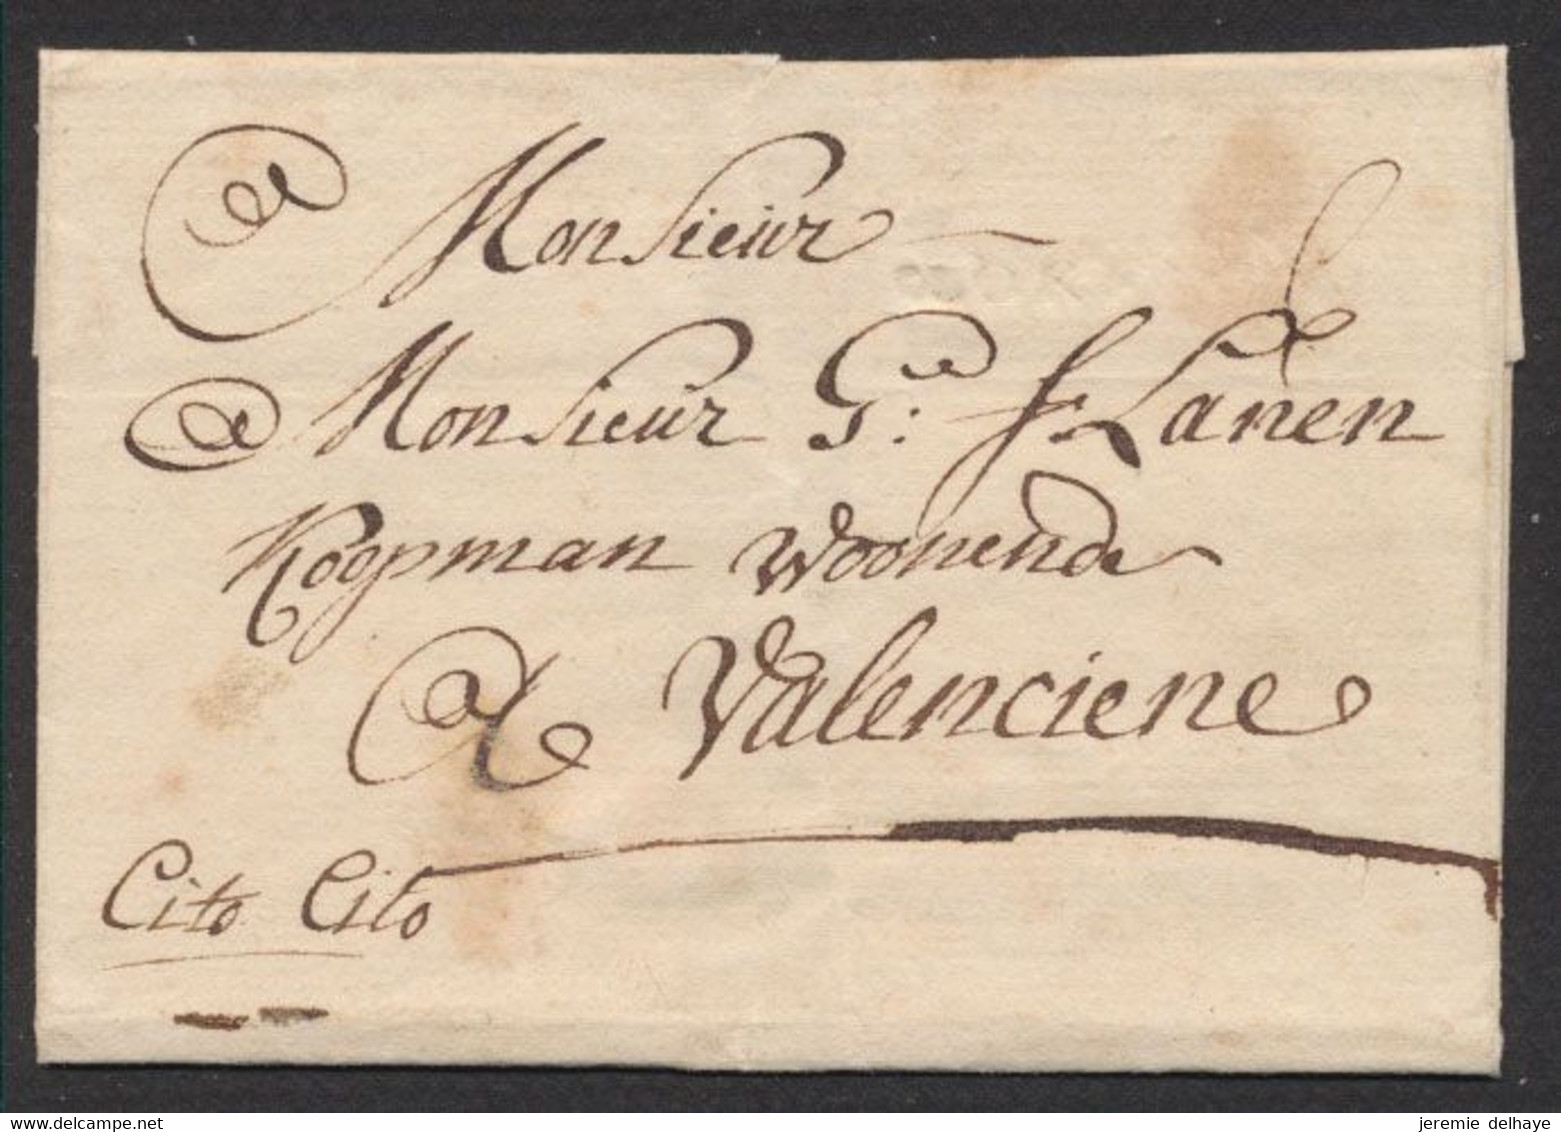 A Monsieur
A Monsieur G: f: Lanen
Koopman Woonende
A Valenciene
Cito Cito
jeremie delhaye